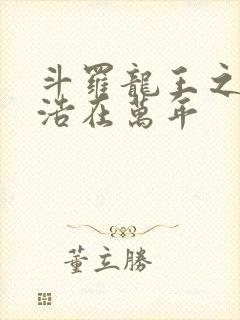 斗羅龍王之
浩在萬年
董立勝